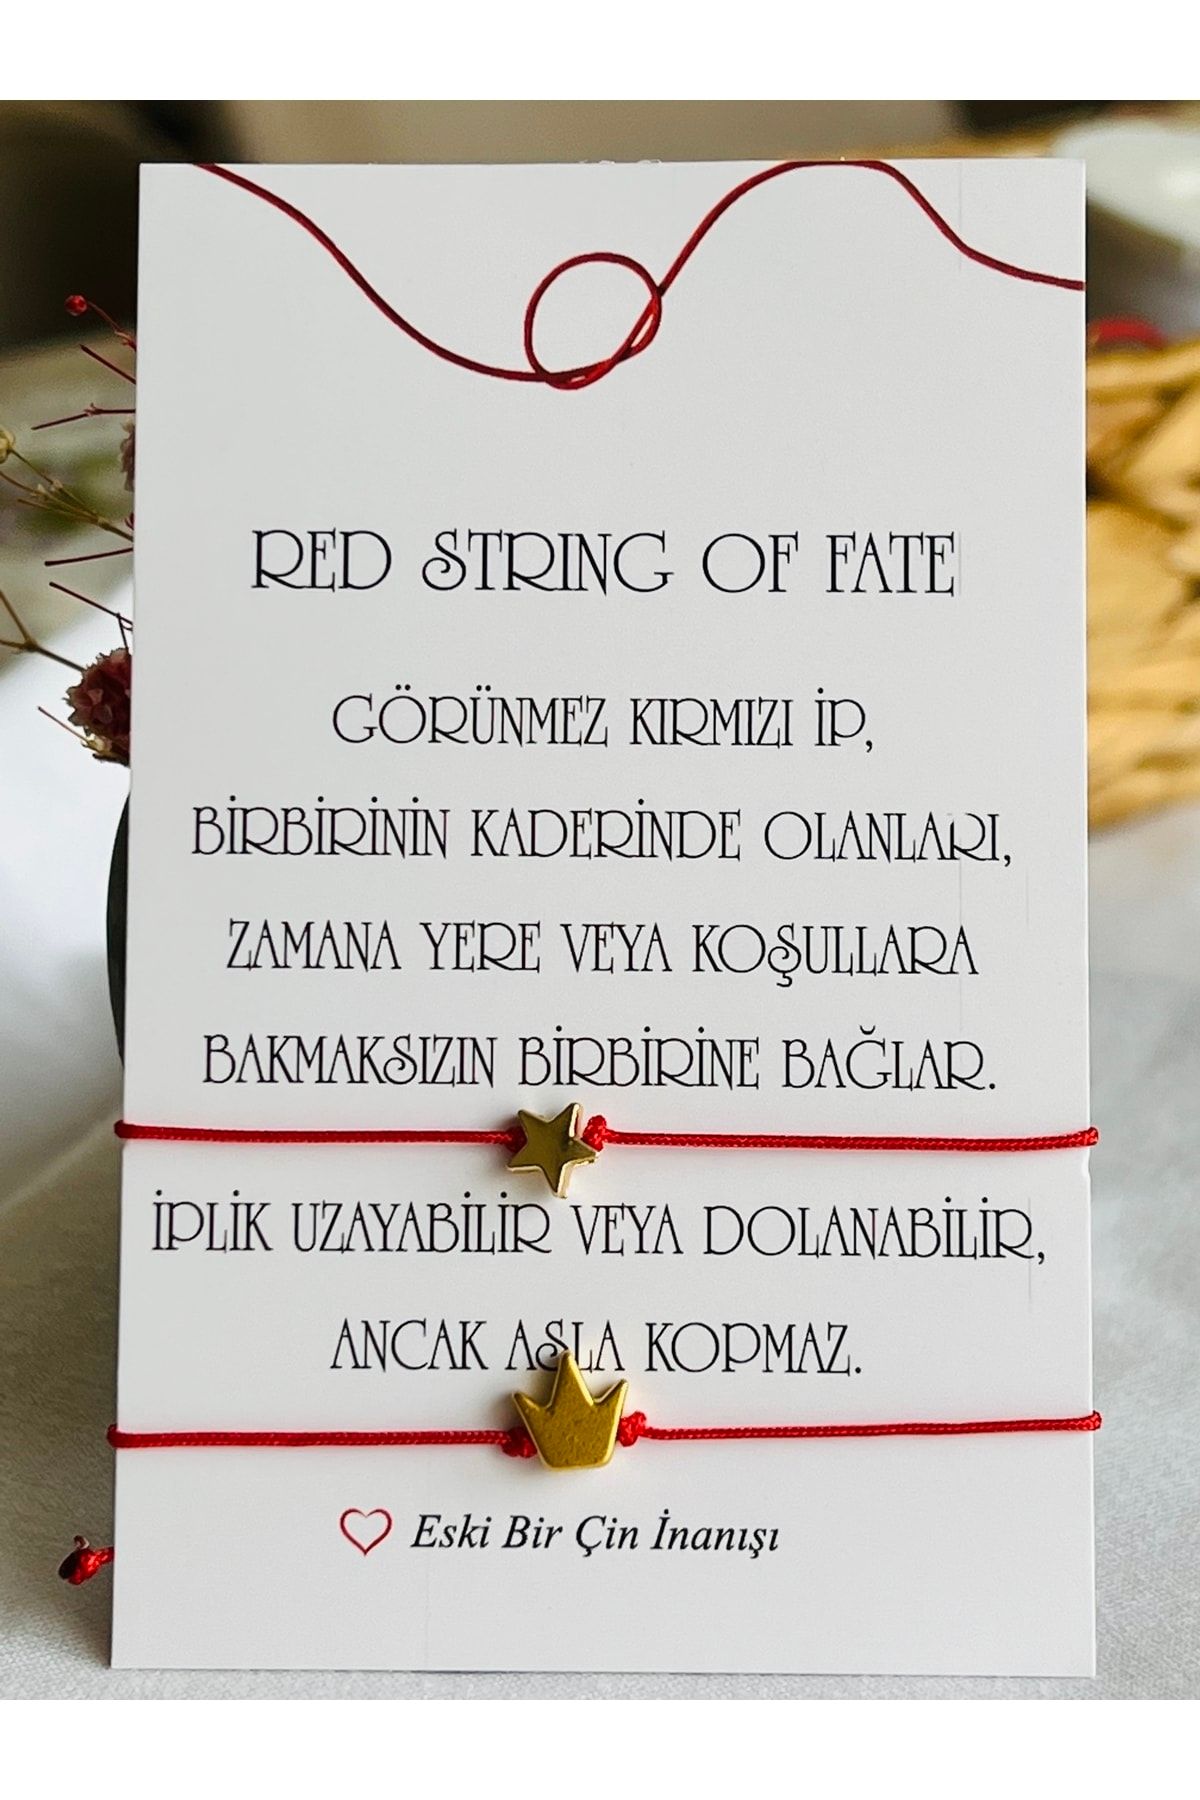 RED STRING OF FATE
GÖRÜNMEZ KIRMIZI İP,
BİRBİRİNİN KADERİNDE OLANLARI,
ZAMANA YERE VEYA KOŞULLARA
BAKMAKSIZIN BİRBİRİNE BAĞLAR.
İPLİK UZAYABİLİR VEYA DOLANABİLİR,
ANCAK ASLA KOPMAZ.
Eski Bir Çin İnanışı